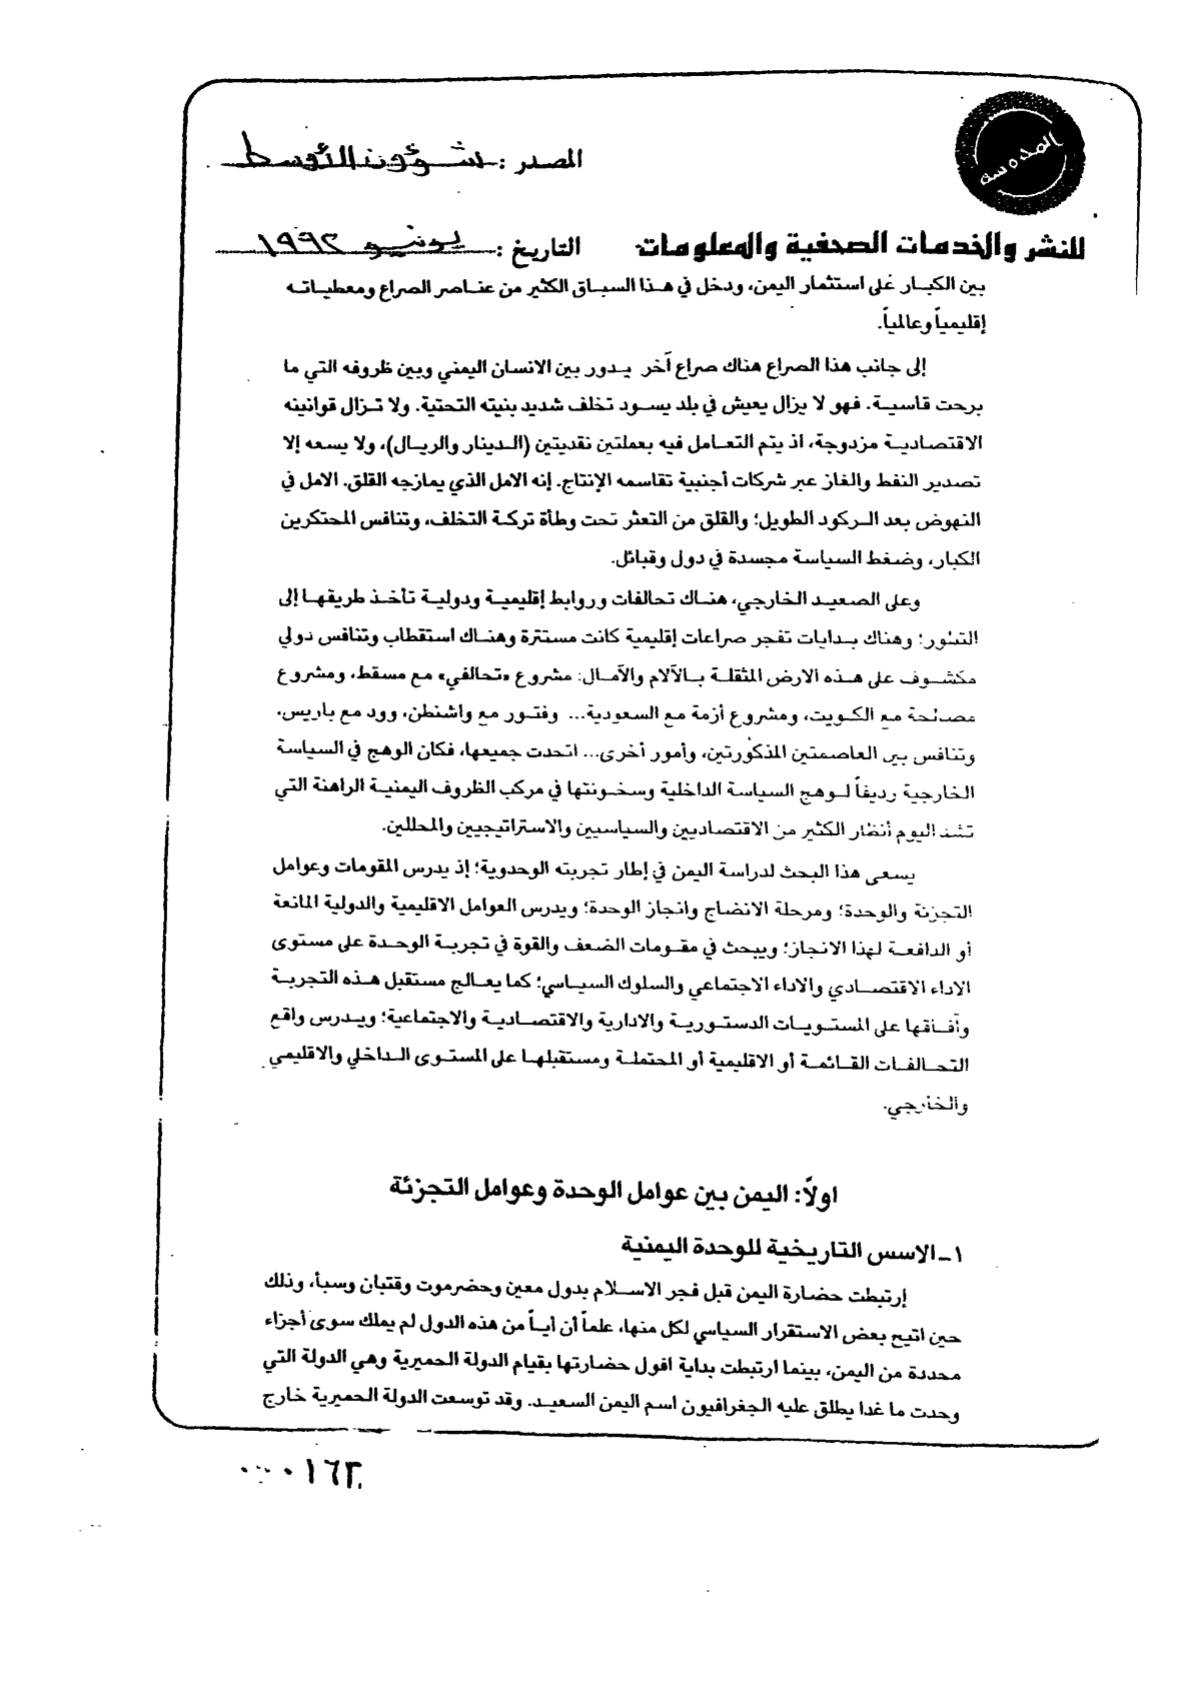 المدوسه
المصدر : شؤون الأوسط
للنشر والخدمات الصحفية والمعلومات
التاريخ : يونيو ١٩٩٢
بين الكبار على استثمار اليمن، ودخل في هذا السباق الكثير من عناصر الصراع ومعطياته
إقليمياً وعالمياً.
إلى جانب هذا الصراع هناك صراع آخر يدور بين الانسان اليمني وبين ظروفه التي ما
برحت قاسية. فهو لا يزال يعيش في بلد يسود تخلف شديد بنيته التحتية. ولا تزال قوانينه
الاقتصادية مزدوجة، اذ يتم التعامل فيه بعملتين نقديتين (الدينار والريال)، ولا يسعه إلا
تصدير النفط والغاز عبر شركات أجنبية تقاسمه الإنتاج. إنه الامل الذي يمازجه القلق. الامل في
النهوض بعد الركود الطويل؛ والقلق من التعثر تحت وطأة تركة التخلف، وتنافس المحتكرين
الكبار، وضغط السياسة مجسدة في دول وقبائل.
وعلى الصعيد الخارجي، هناك تحالفات وروابط إقليمية ودولية تأخذ طريقها إلى
التبلور؛ وهناك بدايات تفجر صراعات إقليمية كانت مستترة وهناك استقطاب وتنافس دولي
مكشوف على هذه الارض المثقلة بالآلام والآمال: مشروع «تحالفي» مع مسقط، ومشروع
مصالحة مع الكويت، ومشروع أزمة مع السعودية... وفتور مع واشنطن، وود مع باريس،
وتنافس بين العاصمتين المذكورتين، وأمور أخرى... اتحدت جميعها، فكان الوهج في السياسة
الخارجية رديفاً لوهج السياسة الداخلية وسخونتها في مركب الظروف اليمنية الراهنة التي
تشد اليوم أنظار الكثير من الاقتصاديين والسياسيين والاستراتيجيين والمحللين.
يسعى هذا البحث لدراسة اليمن في إطار تجربته الوحدوية؛ إذ يدرس المقومات وعوامل
التجزئة والوحدة؛ ومرحلة الانضاج وانجاز الوحدة؛ ويدرس العوامل الاقليمية والدولية المانعة
أو الدافعة لهذا الانجاز؛ ويبحث في مقومات الضعف والقوة في تجربة الوحدة على مستوى
الاداء الاقتصادي والاداء الاجتماعي والسلوك السياسي؛ كما يعالج مستقبل هذه التجربة
وآفاقها على المستويات الدستورية والادارية والاقتصادية والاجتماعية؛ ويدرس واقع
التحالفات القائمة أو الاقليمية أو المحتملة ومستقبلها على المستوى الداخلي والاقليمي
والخارجي.
اولاً: اليمن بين عوامل الوحدة وعوامل التجزئة
١ـ الاسس التاريخية للوحدة اليمنية
إرتبطت حضارة اليمن قبل فجر الاسلام بدول معين وحضرموت وقتبان وسبأ، وذلك
حين اتيح بعض الاستقرار السياسي لكل منها، علماً أن أياً من هذه الدول لم يملك سوى أجزاء
محددة من اليمن، بينما ارتبطت بداية افول حضارتها بقيام الدولة الحميرية وهي الدولة التي
وحدت ما غدا يطلق عليه الجغرافيون اسم اليمن السعيد. وقد توسعت الدولة الحميرية خارج